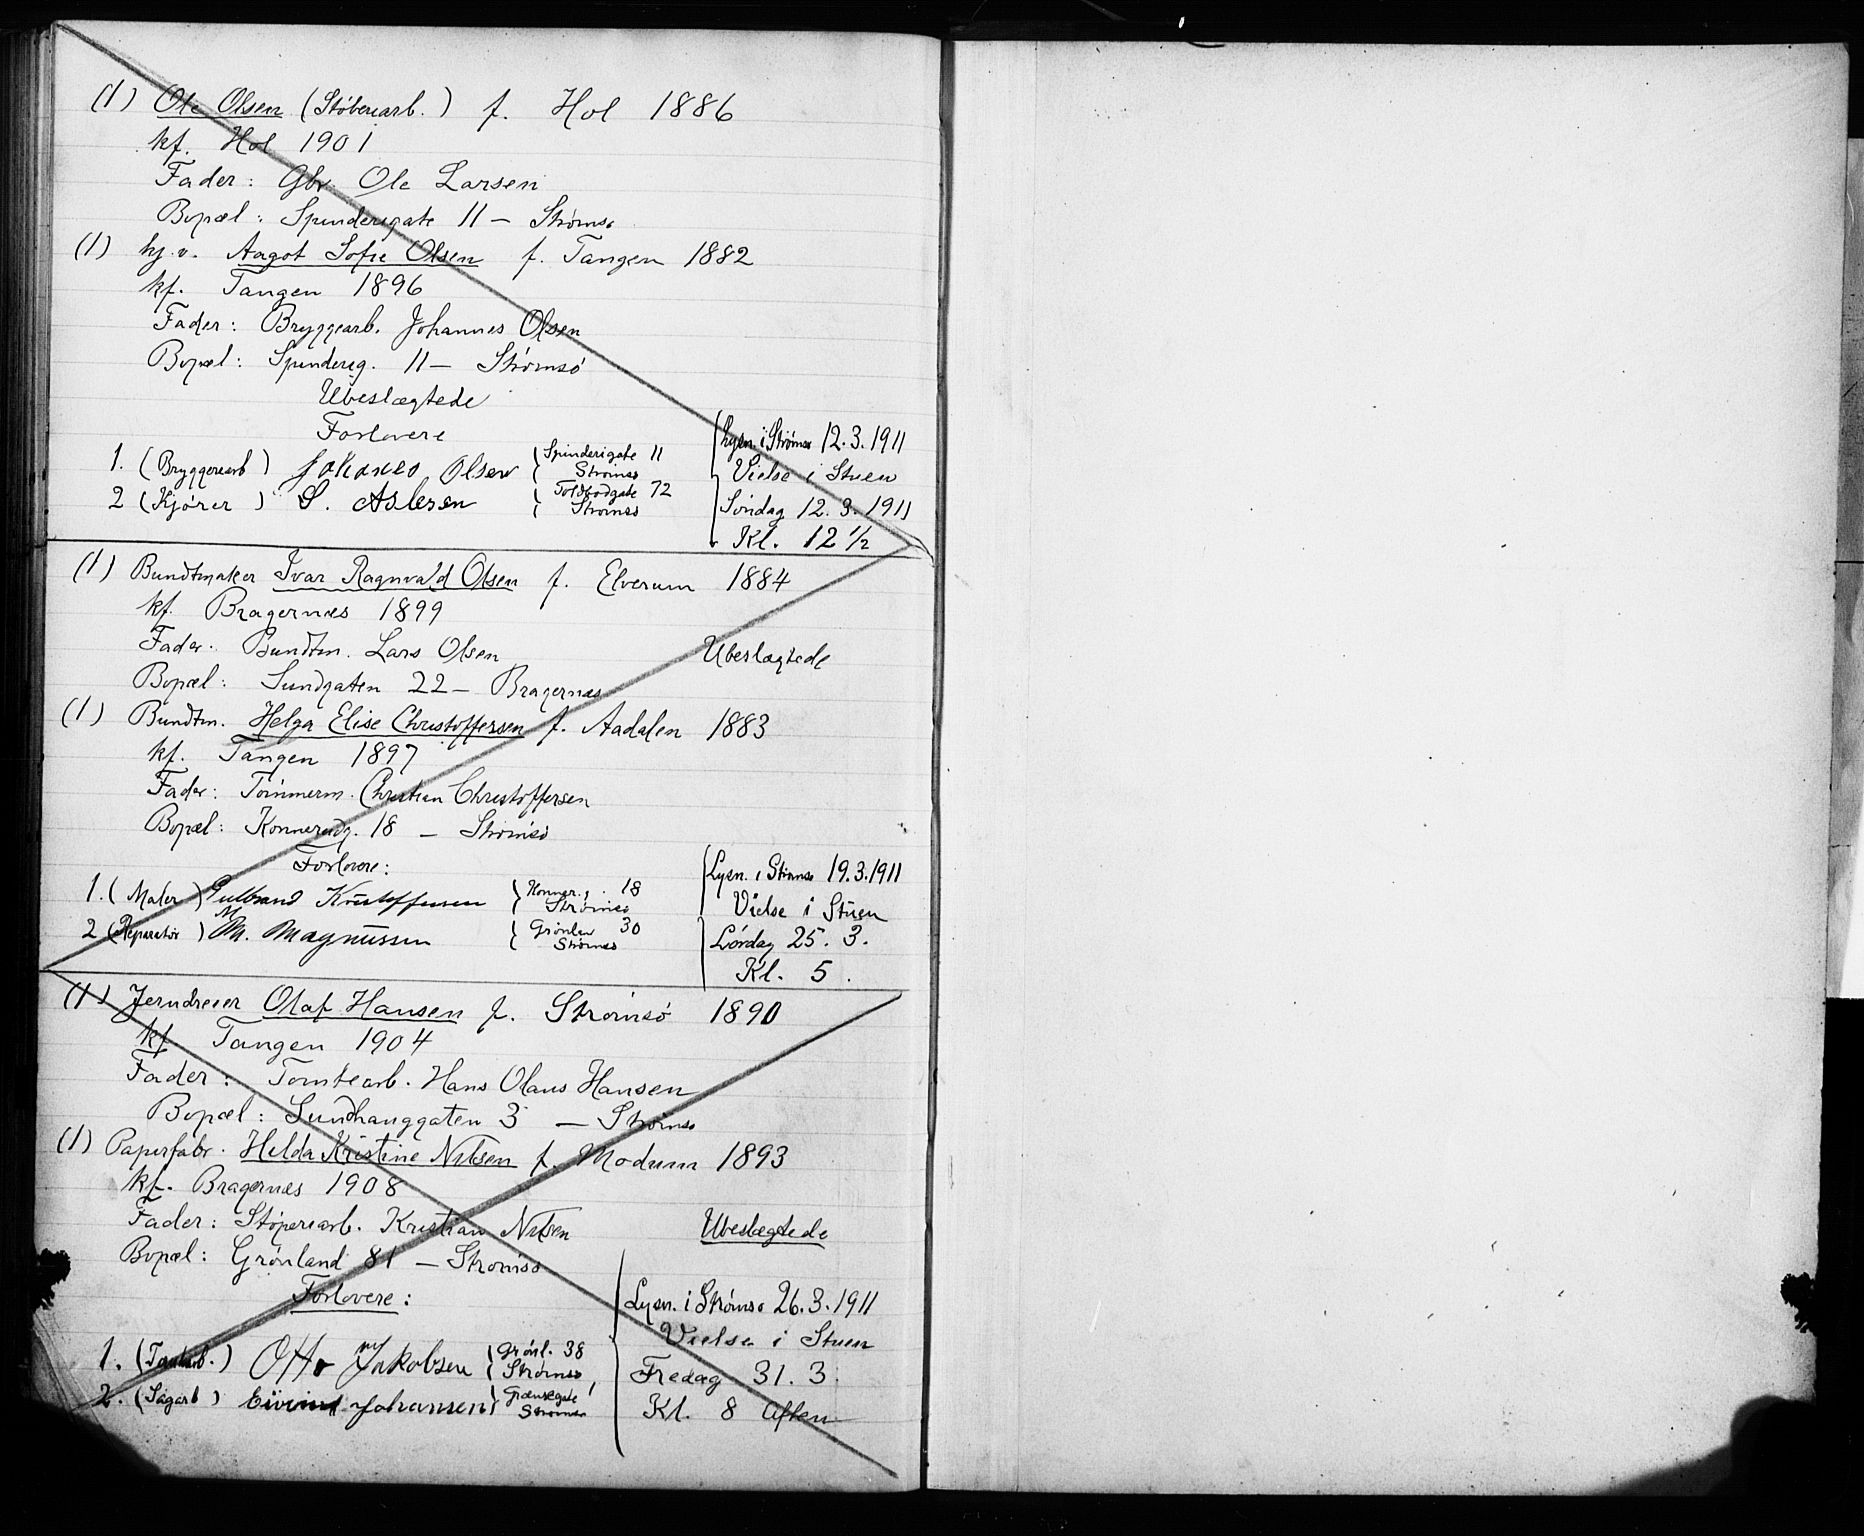 (1) Ole Olsen (Støberiarb.) f. Hol 1886
kf. Hol 1901
Fader: Gbr Ole Larsen
Bopæl: Spinderigate 11 — Strømsø
(1) hj.v. Aagot Sofie Olsen f. Tangen 1882
kf. Tangen 1896
Fader: Bryggearb. Johannes Olsen
Bopæl: Spinderig. 11 — Strømsø
Ubeslægtede
Forlovere
1. (Bryggerearb) Johanes Olsen Spinderigate 11 Strømsø
2 (Kjører) S. Aslesen Toldbodgate 72 Strømsø
Lysn. i Strømsø 12.3.1911
Vielse i Stuen
Søndag 12.3.1911
Kl. 12 1/2
(1) Bundtmaker Ivar Ragnvald Olsen f. Elverum 1884
kf. Bragernæs 1899
Fader: Bundtm. Lars Olsen Ubeslægtede
Bopæl: Sundgaten 22 — Bragernæs
(1) Bundtm. Helga Elise Christoffersen f. Aadalen 1883
kf. Tangen 1897
Fader: Tømmerm. Christian Christoffersen
Bopæl: Konnerudg. 18 — Strømsø
Forlovere:
1. (Maler) Gulbrand Kristoffersen Konner.g. 18 Strømsø
2 (Reparatør) M. Magnussen Grønlan 30 Strømsø
Lysn. i Strømsø 19.3.1911
Vielse i Stuen
Lørdag 25. 3.
Kl. 5.
(1) Jerndreier Olaf Hansen f. Strømsø 1890
kf Tangen 1904
Fader: Tomtearb. Hans Olaus Hansen
Bopæl: Sundhauggaten 3 — Strømsø
(1) Papirfabr. Helda Kristine Nilsen f. Modum 1893
kf. Bragernæs 1908
Fader: Støperiarb. Kristian Nilsen Ubeslægtede
Bopæl: Grønland 81 — Strømsø
Forlovere:
1. (Tomtarb.) Otto Jakobsen Grønl. 38 Strømsø
2. (Sagarb) Eivind Johansen Grænsegate 1 Strømsø
Lysn. i Strømsø 26.3.1911
Vielse i Stuen
Fredag 31. 3.
Kl. 8 Aften